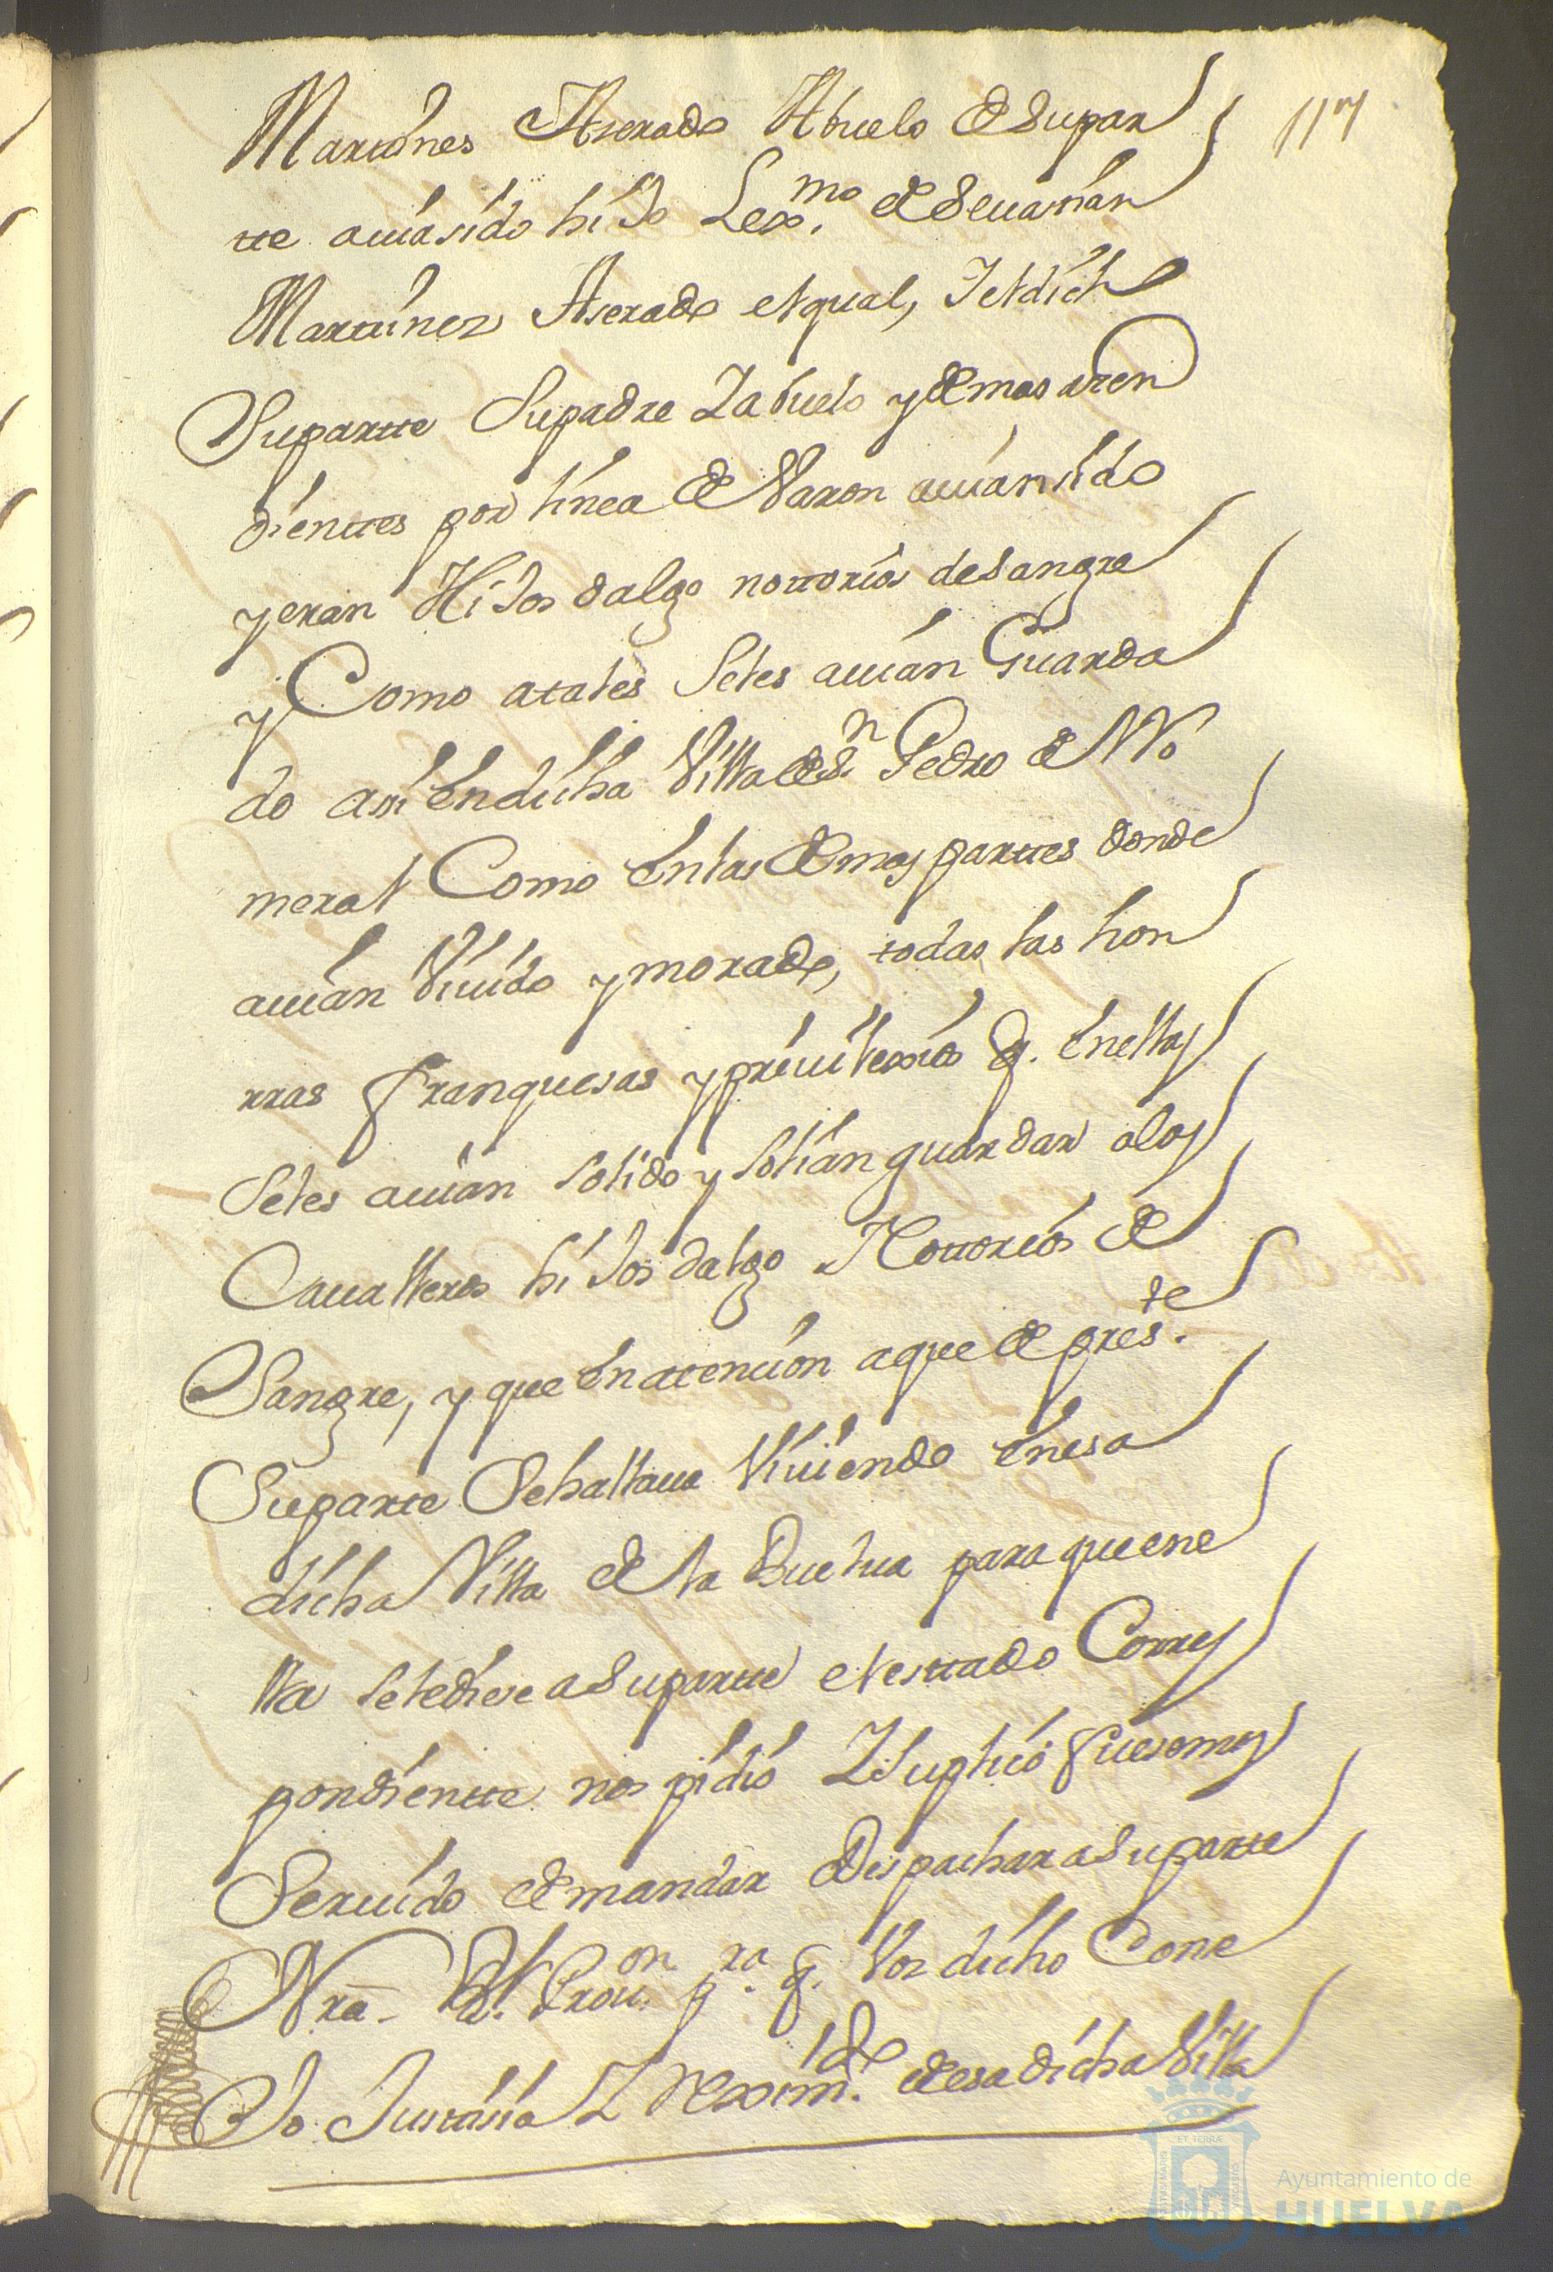 117
Martines Aserado Abuelo de su par
tte auia sido hiJo Lexmo. de Seuastian
Martinez Aserado el qual, I el dicho
Su partte Su padre I abuelo y demas asen
dienttes por linea de Varon auian sido
y eran HiJos dalgo nottorios de Sangre
y Como a tales Se les auian Guarda
do asi En dicha Villa de Sn. Pedro de No
meral Como En las demas parttes donde
auian Viuido y morado, todas las hon
rras franquesas y priuilexios q. En ellas
Se les auian Solido y Solian guardar a los
Caualleros hiJos dalgo Nottorios de
Sangre, y que En atencion a que de preste.
Su parte Se hallaua Viuiendo En esa
dicha Villa de la Buelua para que en e
lla Se le diese a Su partte el esttado Corres
pondientte nos pidio I Suplico fuesemos
Seruido de mandar Despachar a Su partte
Nra. Rl. Prouon. pra. q. Vos dicho Conse
Jo Justisia I Reximdo. de esa dicha Villa
Ayuntamiento de
HUELVA